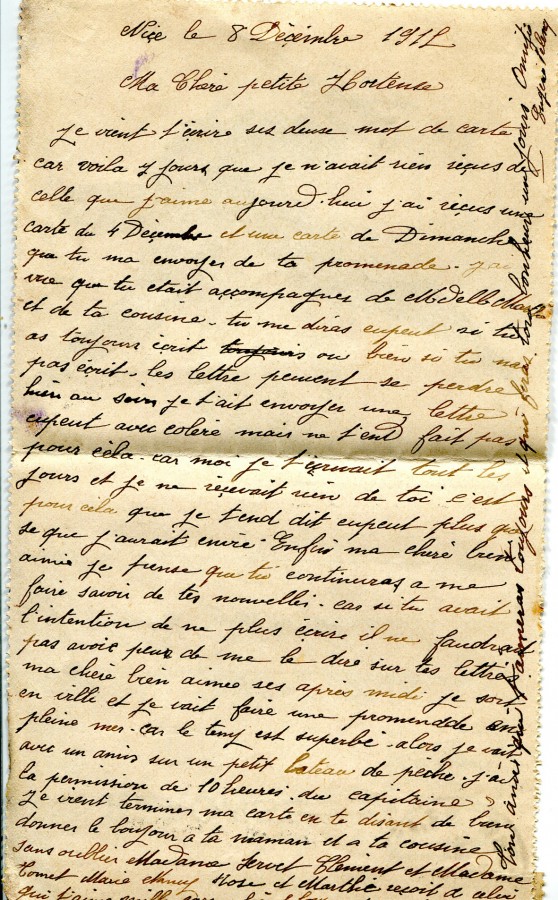 Nice le 8 Décembre 191
Ma Chère petite Hortense
je vient t'écrire ses deuse mot de carte
car voila 7 jours que je n'avait rien reçus de
celle que j'aime aujourd-hui j'ai reçus une
carte du 4 Décembre et une carte de Dimanche
que tu ma envoyer de ta promenade - j'ai
vue que tu était accompagnes de Mdelle
et de ta cousine - tu me diras eupeut si tu
as toujours écrit toujours ou bien si tu ma
pas écrit - les lettre peuvent se perdre
hier au soir je t'ait envoyer une lettre
eupeut avec colère mais ne t'end fait pas
pour cèla - car moi je t'écrivait tout les
jours et je ne reçevait rien de toi c'est
pour cela que je t'end dit eupeut plus que
se que j'aurait envie - Enfin ma chère bien
aimée je pense que tu continueras a me
faire savoir de tes nouvelles - cas si tu avait
l'intention de ne plus écrire il ne faudrait
pas avoir peur de me le dire sur tes lettres
ma chère bien aimée ses après midi je sort
en ville et je vait faire une promenadde en
pleine mer - car le temp est superbe - alors je vait
avec un amis sur un petit bateau de pèche - j'ai
la permission de 10 heures du capitaine
Je vient terminer ma carte en te disant de bien
donner le boujour a ta maman et a ta cousine
sans oublier Madame Servet Clément et Madame
Comet Marie Rose et Marthe reçoit de celui
qui t'aime
ton ami qui t'aimeras toujours et qui feras ton bonheur un jours Amitié